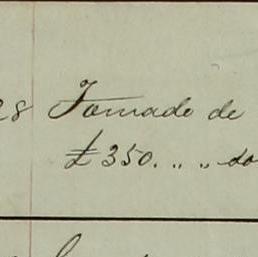 28 Tomado de
£350. „ „ so